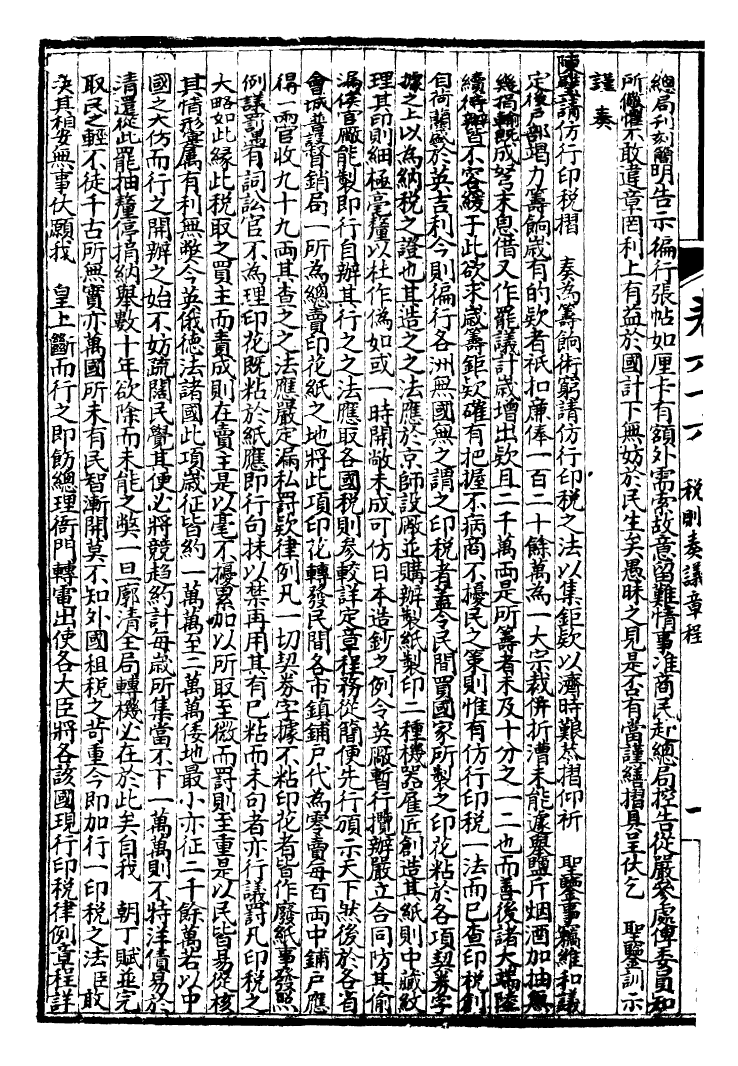 總局刋刻簡明告示徧行張帖如厘卡有額外需索故意留難情事准商民赴總局控告從嚴參處俾委員知
所儆懼不敢違章罔利上有益於國計下無妨於民生矣愚昧之見是否有當謹繕摺具呈伏乞 聖鑒訓示
謹奏
陳璧請仿行印税摺 奏為籌餉術窮請仿行印税之法以集鉅欵以濟時艱恭摺仰祈 聖鑒事竊維和議
定後戶部竭力籌餉嵗有的欵者祇扣廉俸一百二十餘萬為一大宗裁併折漕未能遽舉鹽斤烟酒加抽無
幾捐輸既成弩末息借又作罷議計嵗增出欵且二千萬両是所籌者未及十分之一二也而善後諸大端陸
續待辦皆不容緩于此欲求嵗籌鉅欵確有把握不病商不擾民之策則惟有仿行印税一法而已查印税創
自荷蘭盛於英吉利今則徧行各洲無國無之謂之印税者蓋令民間買國家所製之印花粘於各項契券字
據之上以為納税之證也其造之之法應於京師設廠並購辦製紙製印二種機器雇匠創造其紙則中藏紋
理其印則細極毫釐以杜作偽如或一時開敞未成可仿日本造鈔之例令英廠暫行攬辦嚴立合同防其偷
漏俟官廠能製即行自辦其行之之法應取各國税則參較詳定章程務從簡便先行頒示天下然後於各省
會城普設督銷局一所為總賣印花紙之地將此項印花轉發民間各市鎮鋪户代為零賣每百両中鋪户應
得一両官收九十九両其查之之法應嚴定漏私罰欵律例凡一切契券字據不粘印花者皆作廢紙事發照
例議罰遇有詞訟官不為理印花既粘於紙應即行勾抹以禁再用其有已粘而未勾者亦行議罰凡印税之
大略如此緣此税取之買主而責成則在賣主是以毫不擾累加以所取至微而罰則至重是以民皆易從核
其情形實屬有利無獘今英俄德法諸國此項嵗征皆約一萬萬至二萬萬倭地最小亦征二千餘萬若以中
國之大仿而行之開辦之始不妨疏闊民覺其便必將競趋約計每嵗所集當不下一萬萬則不特洋債易於
清還從此罷抽釐停捐納舉數十年欲除而未能之獘一旦廓清全局轉機必在於此矣自我 朝丁賦並完
取民之輕不徒千古所無實亦萬國所未有民智漸開莫不知外國租税之苛重今即加行一印税之法臣敢
決其相安無事伏願我 皇上斷而行之即飭總理衙門轉電出使各大臣將各該國現行印税律例章程詳
卷六十六 税則奏議章程 一